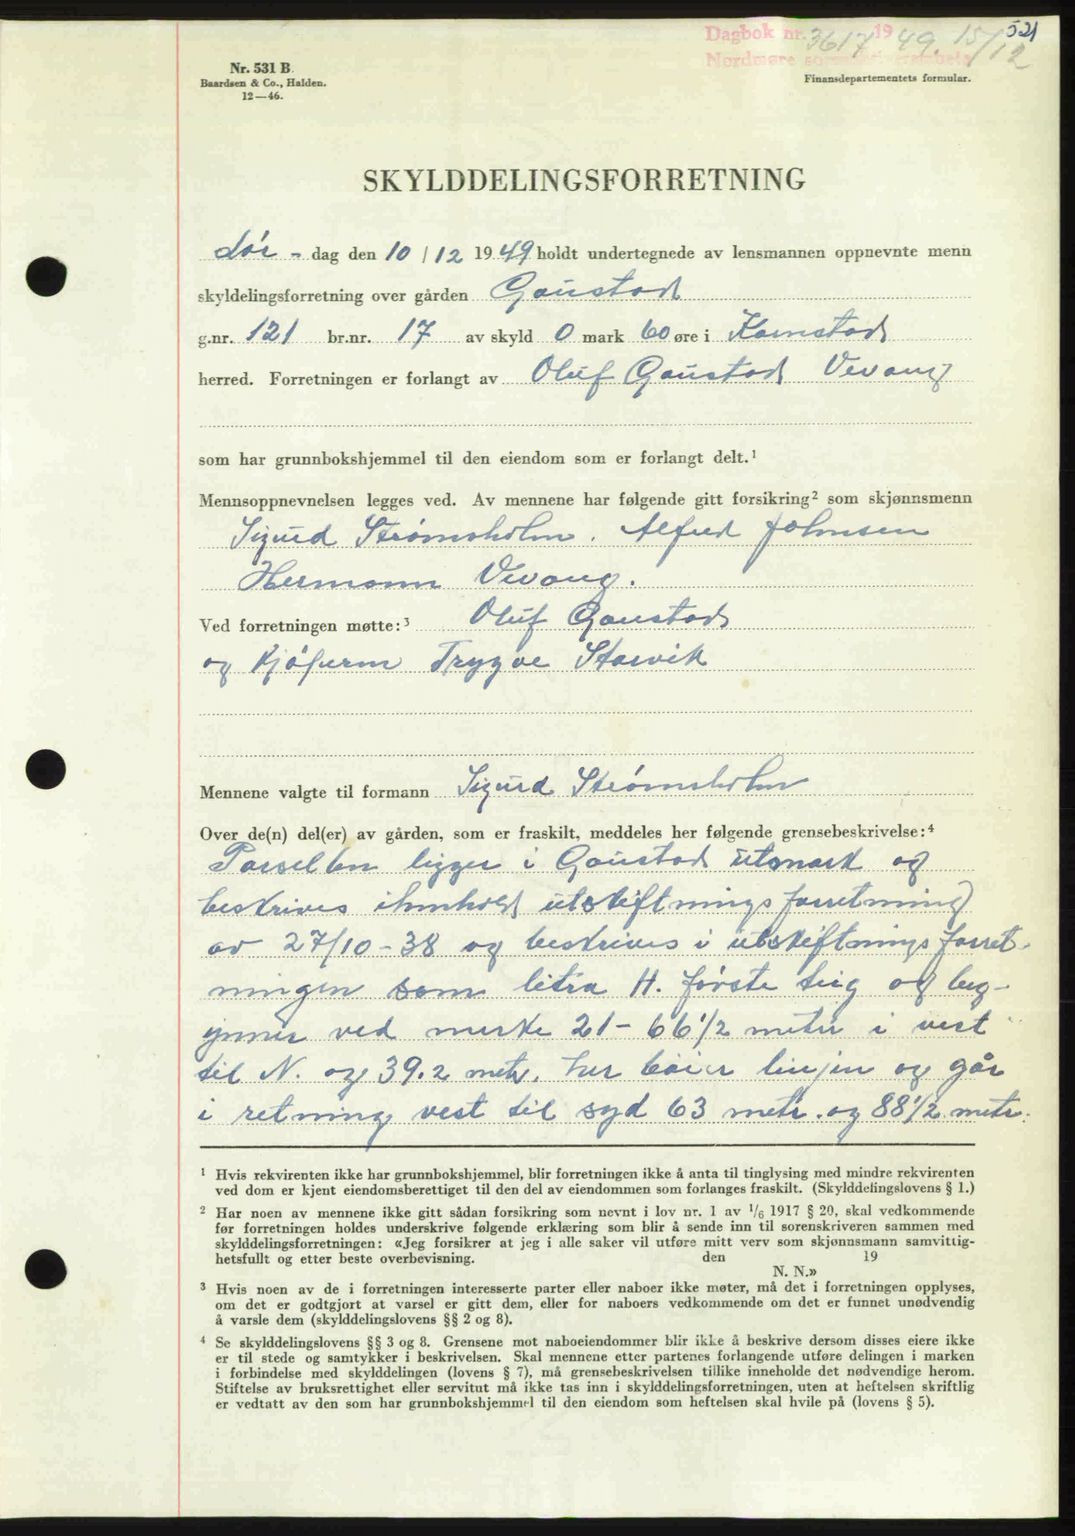 521
Dagbok nr. 3617 1949. 15/12
Nordmøre sorenskriverembete
Nr. 531 B.
Baardsen & Co., Halden.
12—46.
Finansdepartementets formular.
SKYLDDELINGSFORRETNING
Lør - dag den 10 / 12 1949 holdt undertegnede av lensmannen oppnevnte menn
skyldelingsforretning over gården Gaustad
g.nr. 121 br.nr. 17 av skyld 0 mark 60 øre i Kornstad
herred. Forretningen er forlangt av Oluf Gaustad Vevang
som har grunnbokshjemmel til den eiendom som er forlangt delt.¹
Mennsoppnevnelsen legges ved. Av mennene har følgende gitt forsikring² som skjønnsmenn
Sigurd Strømsholm. Alfred Johnsen
Hermann Vevang.
Ved forretningen møtte:³ Oluf Gaustad
og Kjøperen Trygve Storvik
Mennene valgte til formann Sigurd Strømsholm
Over de(n) del(er) av gården, som er fraskilt, meddeles her følgende grensebeskrivelse:⁴
Parsellen ligger i Gaustad utsmark og
beskrives ihenhold utskiftningsforretning
av 27/10-38 og beskrives i utskiftningsforret-
ningen som litra H. første teig og beg-
ynner ved merke 21 - 66 1/2 meter i vest
til N. og 39.2 metr. her bøier linjen og går
i retning vest til syd 63 metr. og 88 1/2 metr.
¹ Hvis rekvirenten ikke har grunnbokshjemmel, blir forretningen ikke å anta til tinglysing med mindre rekvirenten
ved dom er kjent eiendomsberettiget til den del av eiendommen som forlanges fraskilt. (Skylddelingslovens § 1.)
² Har noen av mennene ikke gitt sådan forsikring som nevnt i lov nr. 1 av 1/6 1917 § 20, skal vedkommende
før forretningen holdes underskrive følgende erklæring som blir å sende inn til sorenskriveren sammen med
skylddelingsforretningen: «Jeg forsikrer at jeg i alle saker vil utføre mitt verv som skjønnsmann samvittig-
hetsfullt og etter beste overbevisning. den 19
N. N.»
³ Hvis noen av de i forretningen interesserte parter eller naboer ikke møter, må det i forretningen opplyses,
om det er godtgjort at varsel er gitt dem, eller for naboers vedkommende om det er funnet unødvendig
å varsle dem (skylddelingslovens §§ 2 og 8).
⁴ Se skylddelingslovens §§ 3 og 8. Grensene mot naboeiendommer blir ikke å beskrive dersom disses eiere ikke
er til stede og samtykker i beskrivelsen. Skal mennene etter partenes forlangende utføre delingen i marken
i forbindelse med skylddelingen (lovens § 7), må grensebeskrivelsen tillike inneholde det nødvendige herom.
Stiftelse av bruksrettighet eller servitut må ikke tas inn i skylddelingsforretningen, uten at heftelsen skriftlig
er vedtatt av den som har grunnbokshjemmel til den eiendom som heftelsen skal hvile på (lovens § 5).